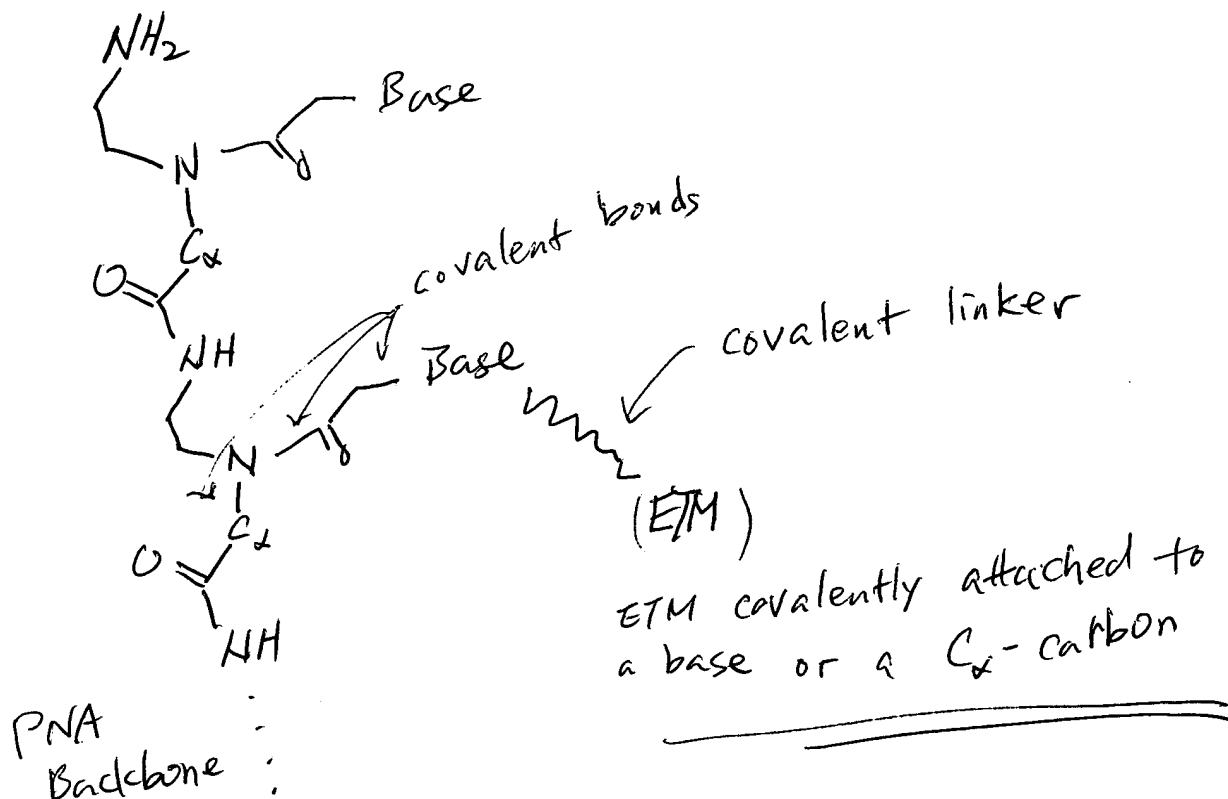 NH2
Base
N
O
Cα
O
covalent bonds
NH
Base
covalent linker
N
O
(ETM)
Cα
O
NH
ETM covalently attached to
a base or a Cα-carbon
PNA
Backbone